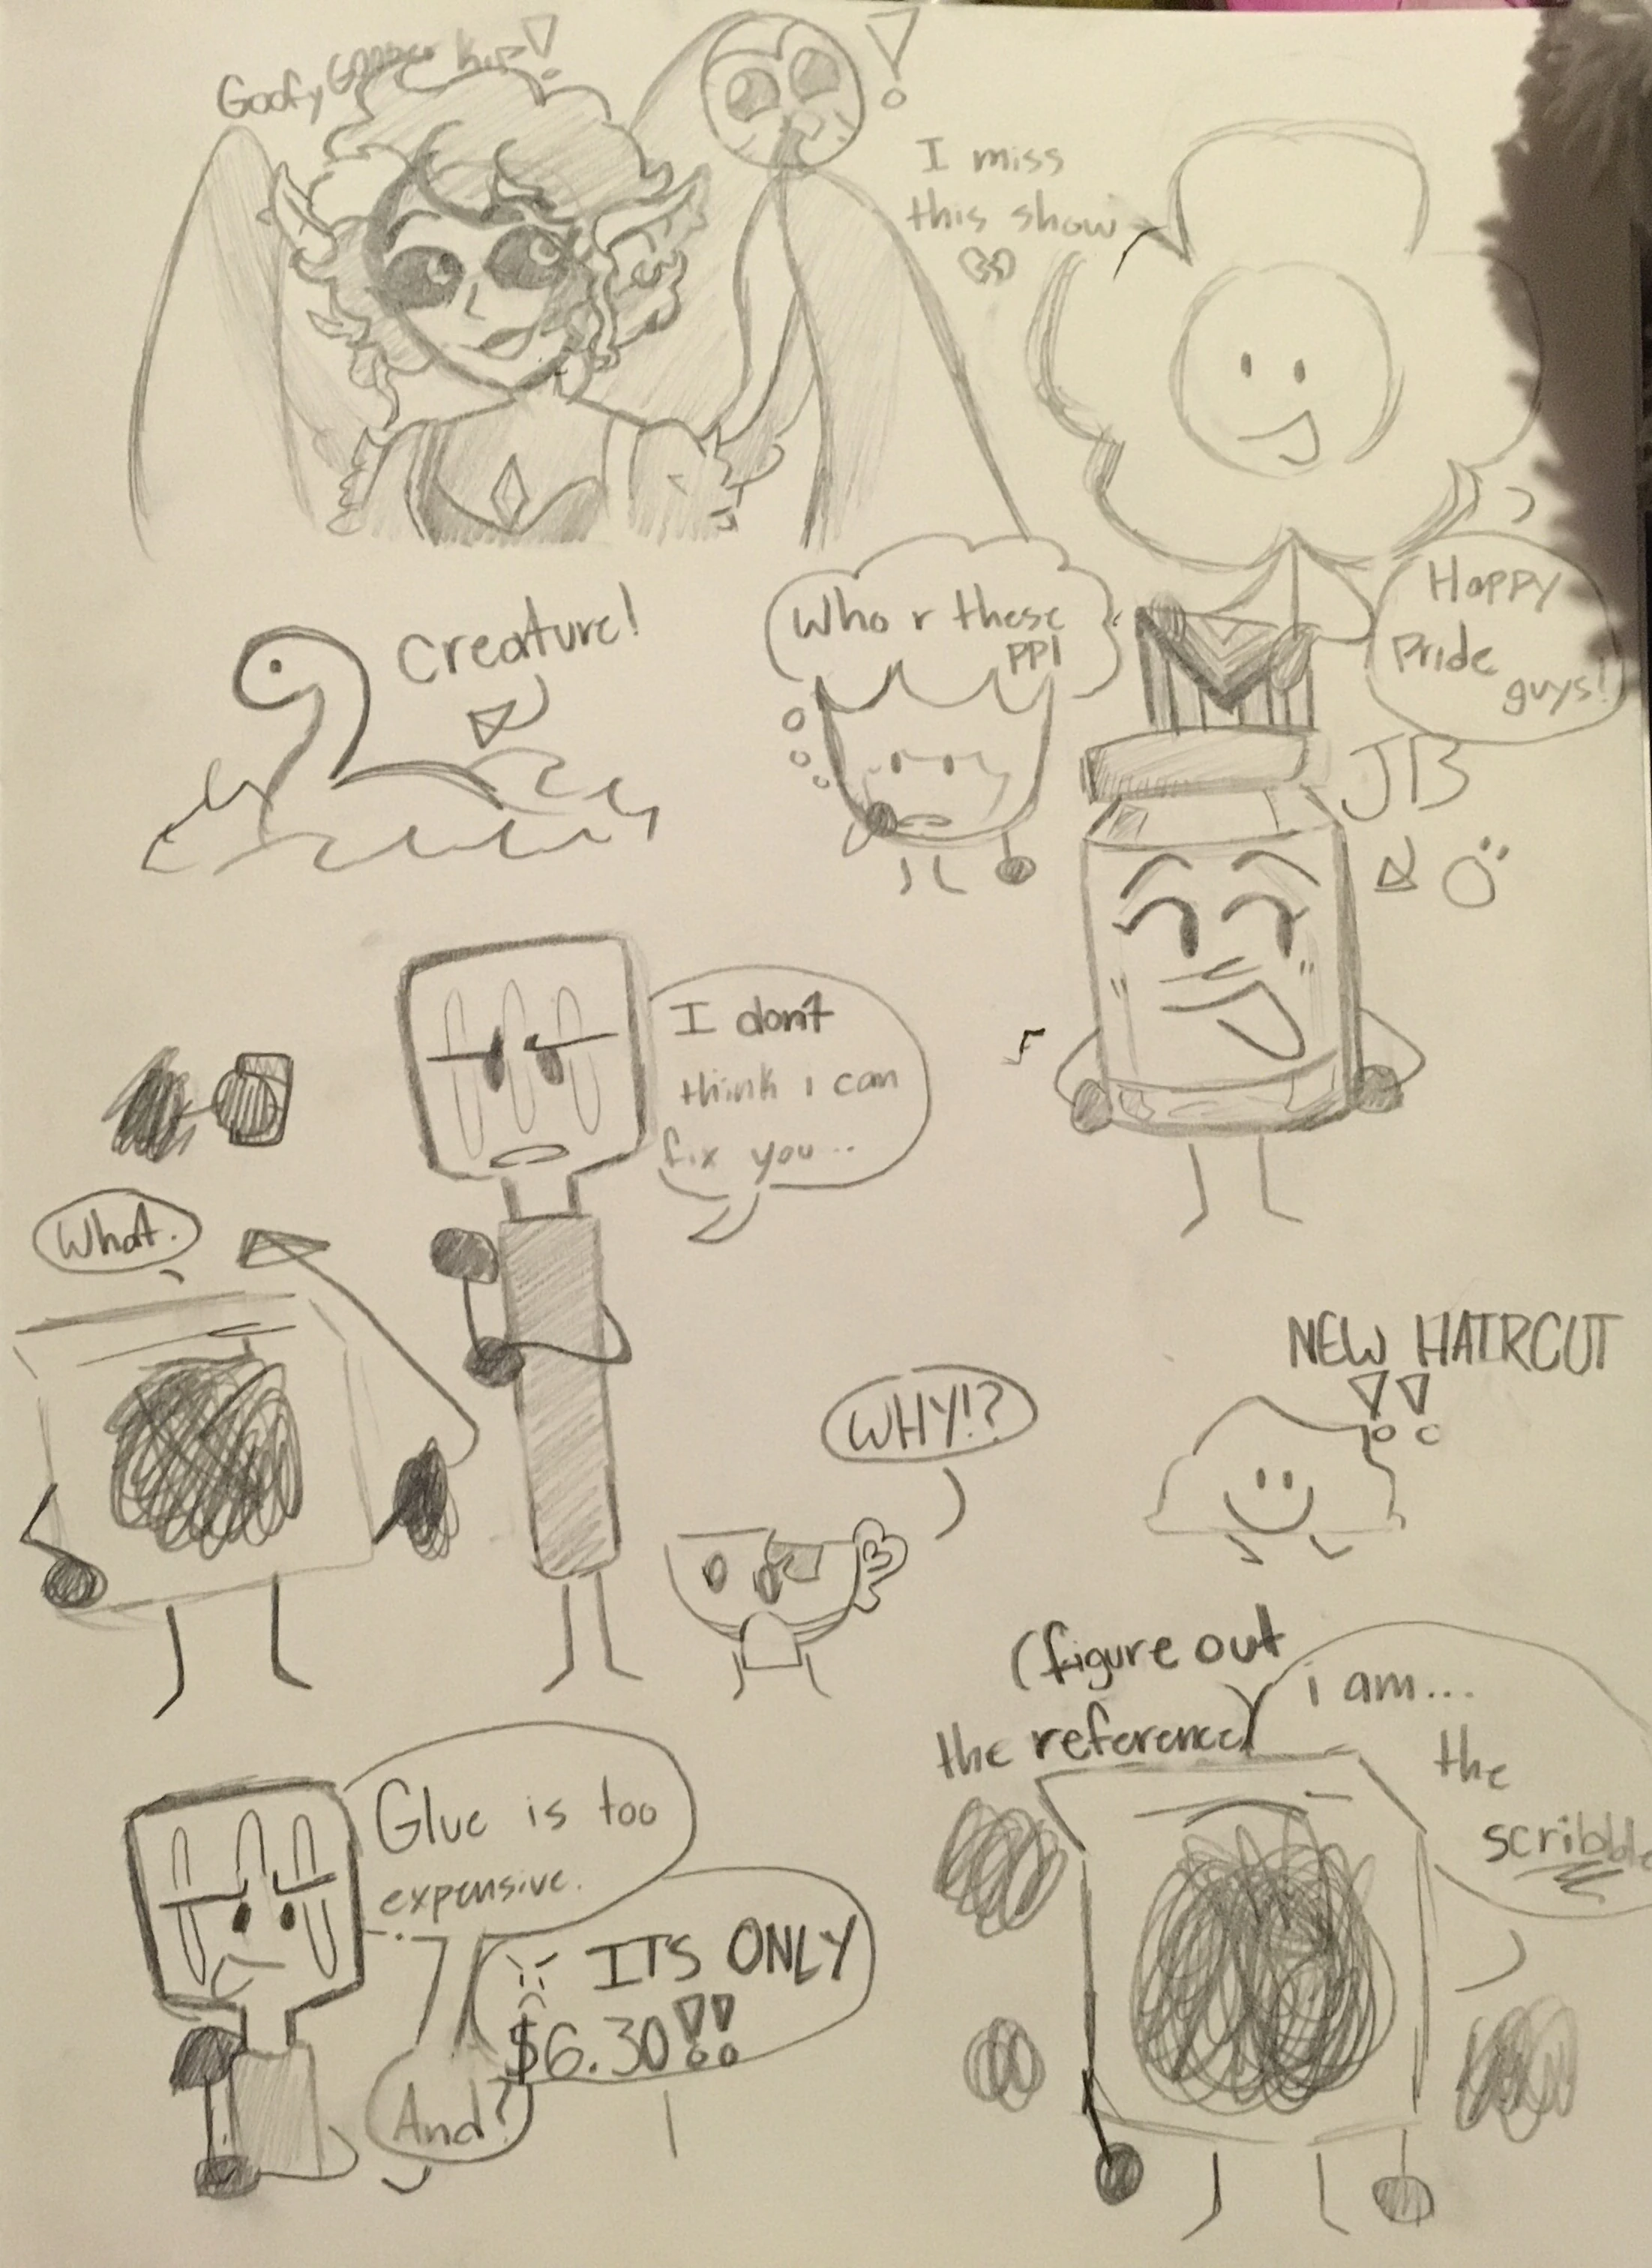 Goofy Goober hip!
!
I miss
this show
Happy
Pride
guys!
Creature!
Who r these
ppl
JB
I don't
think i can
fix you...
What.
NEW HAIRCUT
!!
WHY!?
(figure out
the reference)
i am...
the
scribble
Glue is too
expensive.
ITS ONLY
$6.30!!
And?